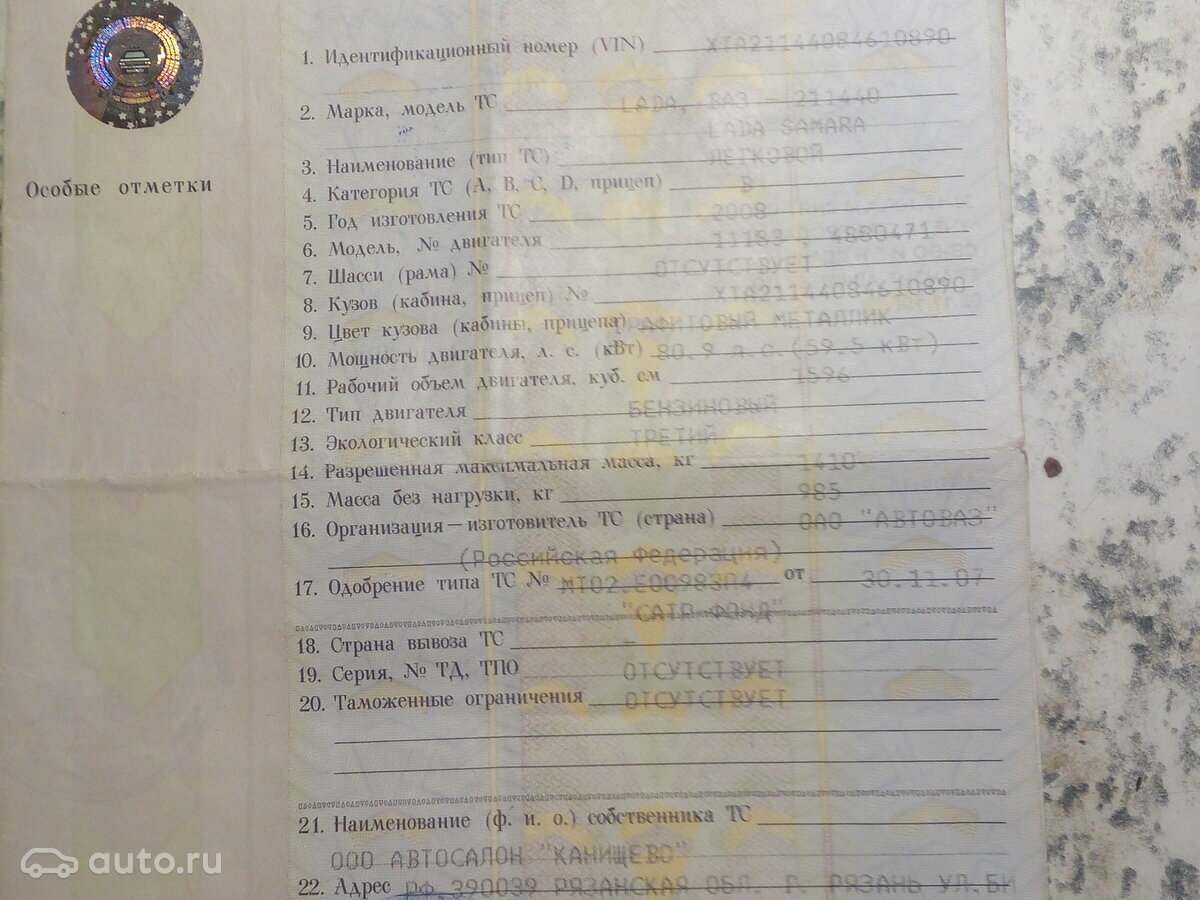 Особые отметки
1. Идентификационный номер (VIN) XTA21144084610890
2. Марка, модель ТС LADA, ВАЗ - 211440
LADA SAMARA
3. Наименование (тип ТС) ЛЕГКОВОЙ
4. Категория ТС (A, B, C, D, прицеп) B
5. Год изготовления ТС 2008
6. Модель, № двигателя 11183 , 4880471
7. Шасси (рама) № ОТСУТСТВУЕТ
8. Кузов (кабина, прицеп) № XTA21144084610890
9. Цвет кузова (кабины, прицепа) ГРАФИТОВЫЙ МЕТАЛЛИК
10. Мощность двигателя, л. с. (кВт) 80.9 л.с.(59.5 кВт)
11. Рабочий объем двигателя, куб. см 1596
12. Тип двигателя БЕНЗИНОВЫЙ
13. Экологический класс ТРЕТИЙ
14. Разрешенная максимальная масса, кг 1410
15. Масса без нагрузки, кг 985
16. Организация—изготовитель ТС (страна) ОАО "АВТОВАЗ"
(Российская Федерация)
17. Одобрение типа ТС № МТ02.Е00983П4 от 30.11.07
"САТР-ФОНД"
18. Страна вывоза ТС –
19. Серия, № ТД, ТПО ОТСУТСТВУЕТ
20. Таможенные ограничения ОТСУТСТВУЕТ
21. Наименование (ф. и. о.) собственника ТС
ООО АВТОСАЛОН "КАНИЩЕВО"
22. Адрес РФ,390039 РЯЗАНСКАЯ ОБЛ. Г. РЯЗАНЬ УЛ.БИ
auto.ru